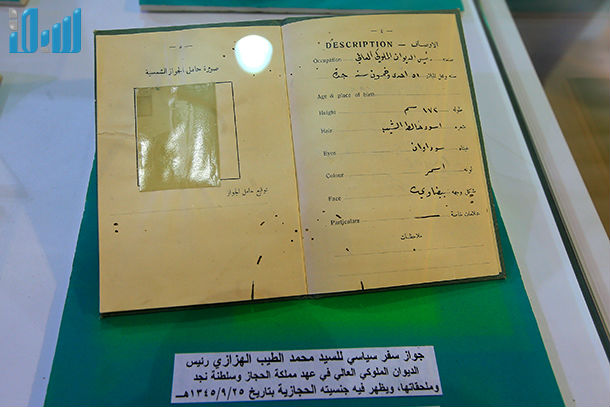 سبق
— ٥ —
صورة حامل الجواز الشمسية
توقيع حامل الجواز
— ٤ —
DESCRIPTION — الاوصاف
Occupation رئيس الديوان الملوكي العالي
٥١ احدى وخمسون سنة
Age & place of birth
Height ١٧٢ سم طوله
Hair اسود خالط الشيب شعره
Eyes سوداوان عيناه
Colour اسمر لونه
Face بيضاوي شكل وجهه
Particulars علامات خاصة
ملاحظات
جواز سفر سياسي للسيد محمد الطيب الهزازي رئيس
الديوان الملوكي العالي في عهد مملكة الحجاز وسلطنة نجد
وملحقاتها، ويظهر فيه جنسيته الحجازية بتاريخ ١٣٤٥/٩/٢٥هـ